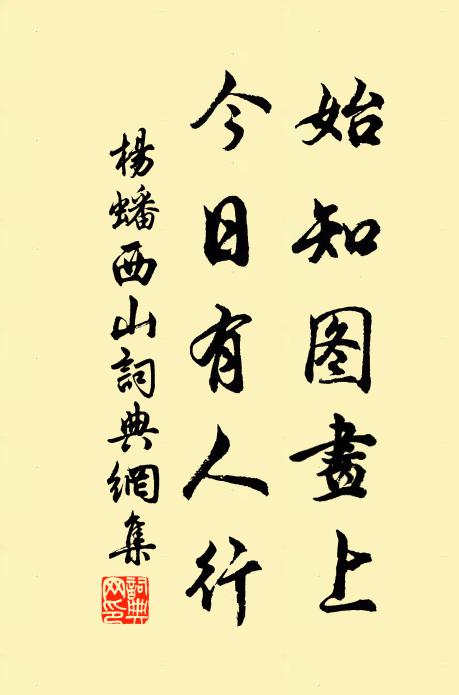 始知图畫上
今日有人行
楊蟠西山詞典網集
詞典网印